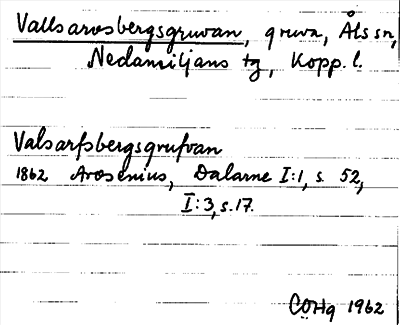 Vallsarvsbergsgruvan, gruva, Åls sn,
Nedansiljans tg, Kopp. l.
Valsarfsbergsgrufvan
1862 Arosenius, Dalarne I:1, s. 52,
I:3, s. 17.
COHg 1962